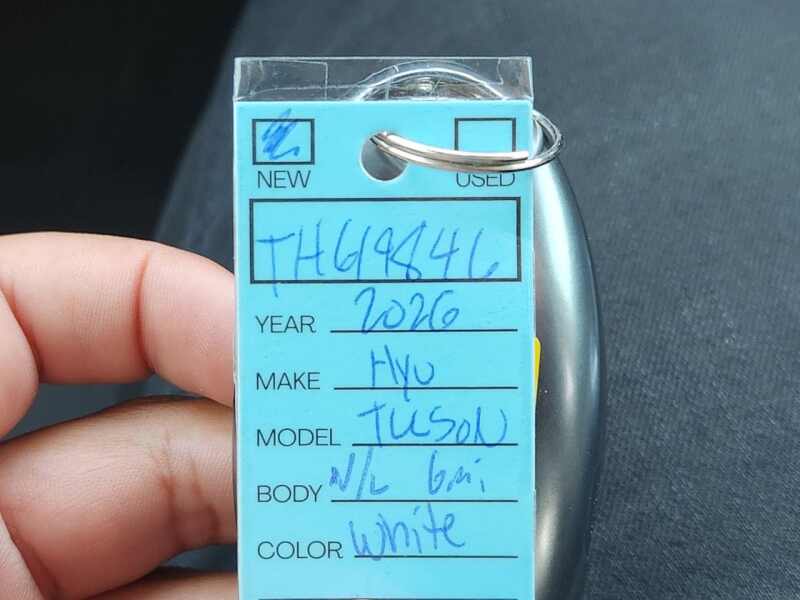 NEW USED
TH619846
YEAR 2026
MAKE Hyu
MODEL TUSON
BODY N/L 6mi
COLOR White